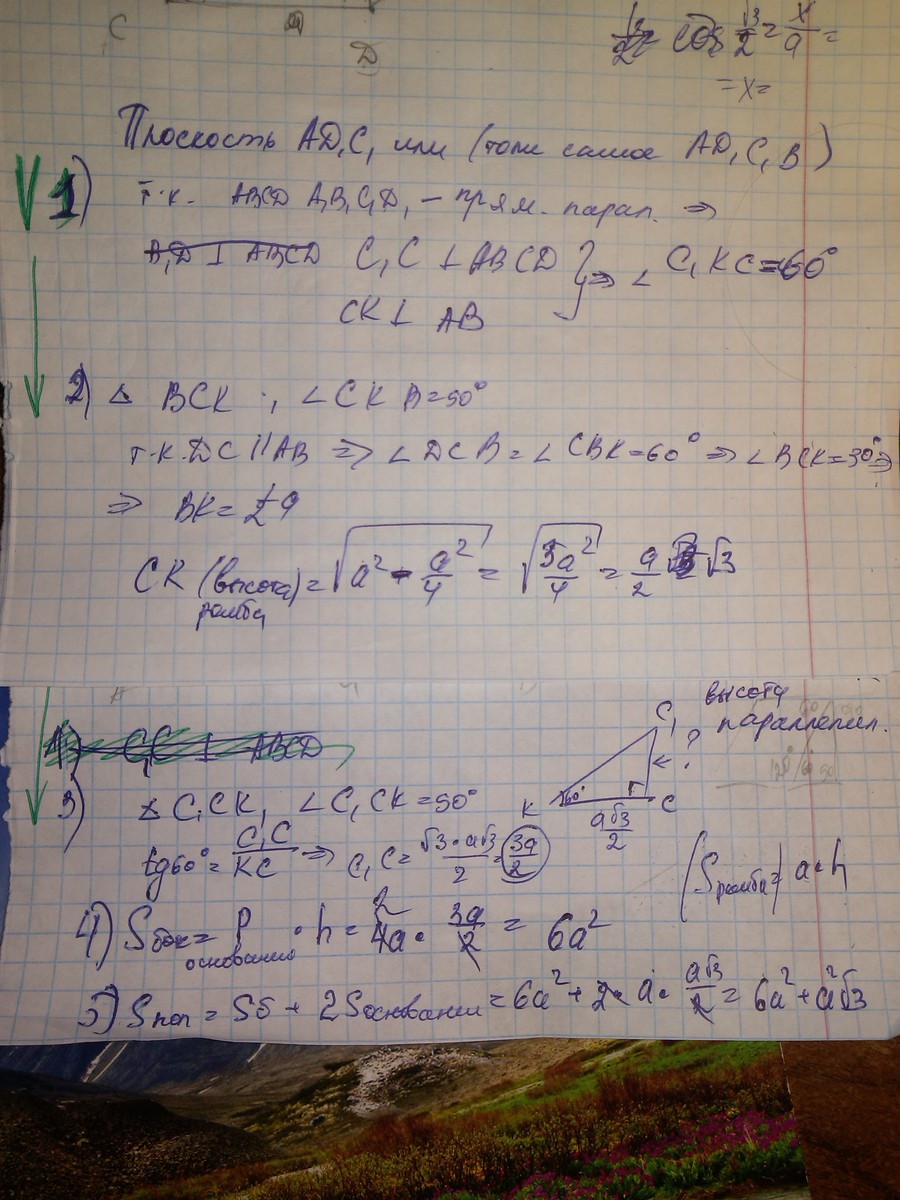 C a
D
cos √3/2 = x/a =
= x =
Плоскость AD₁C₁ или (тоже самое AD₁C₁B)
1) т.к. ABCD A₁B₁C₁D₁ – прям. парал. ⇒
B₁D ⊥ ABCD C₁C ⊥ ABCD } ⇒ ∠ C₁KC = 60°
CK ⊥ AB
2) △ BCK ; ∠ CKB = 90°
т.к. DC || AB ⇒ ∠ DCB = ∠ CBK = 60° ⇒ ∠ BCK = 30° ⇒
⇒ BK = ½ a
CK (высота ромба) = √(a² - a²/4) = √(3a²/4) = a/2 √3
высота
параллепип.
C₁
?
4) C₁C ⊥ ABCD
3) △ C₁CK, ∠ C₁CK = 90°
K 60° C
a√3/2
tg60° = C₁C/KC ⇒ C₁C = √3·a√3/2 = 3a/2
(Sромба =) a·h
4) Sбок = P основания · h = 4a · 3a/2 = 6a²
5) Sпол = Sб + 2Sоснования = 6a² + 2·a·a√3/2 = 6a² + a²√3